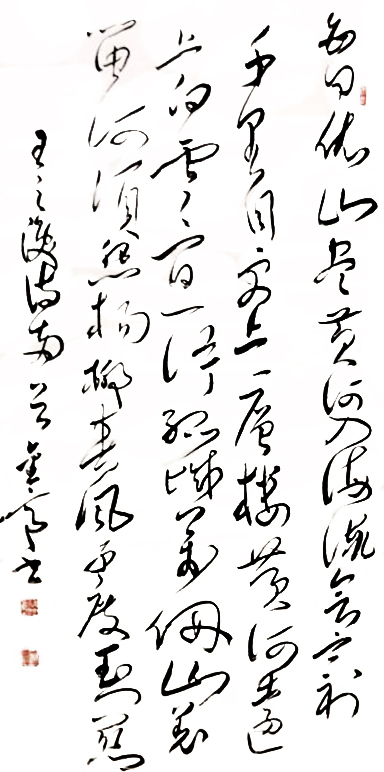 白日依山尽黄河入海流欲穷
千里目更上一层楼黄河远
上白云间一片孤城万仞山羌
笛何须怨杨柳春风不度玉门关
王之涣诗二首
书